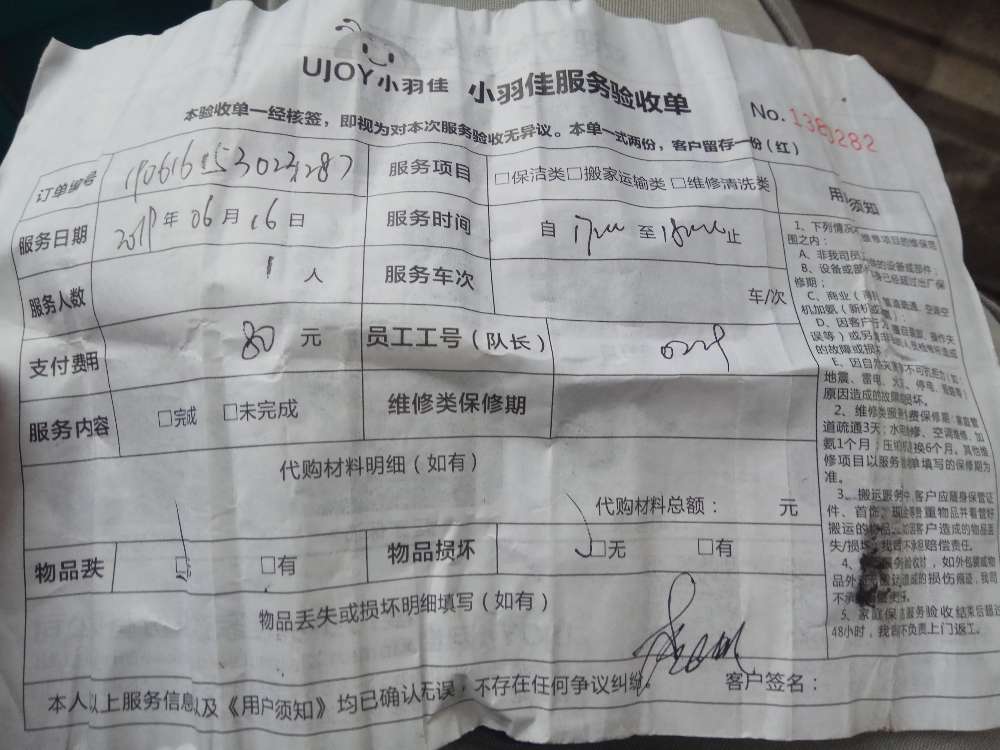 UJOY小羽佳 小羽佳服务验收单
No. 1380282
本验收单一经核签，即视为对本次服务验收无异议。本单一式两份，客户留存一份（红）
订单编号 服务项目 □保洁类□搬家运输类 □维修清洗类
服务日期 2019年06月16日 服务时间 自 17:00 至 18:00 止
服务人数 1 人 服务车次 车/次
支付费用 80 元 员工工号（队长）
服务内容 □完成 □未完成 维修类保修期
代购材料明细（如有）
代购材料总额： 元
物品丢 □有 物品损坏 □无 □有
物品丢失或损坏明细填写（如有）
本人以上服务信息以及《用户须知》均已确认无误，不存在任何争议纠纷。 客户签名：
用户须知
1、下列情况 维修项目的维保范
围之内：
A、非我司员 的设备或部件；
B、设备或部 已经超过出厂保
修期；
C、商业（ 管道疏通、空调空
机加氨（新机
D、因客户
误等）或另
的故障或损
E、因自然灾害等不可抗拒力（如：
地震、雷电、火灾、停电、
原因造成的故障或损坏。
2、维修类服务 费保修期：家庭管
道疏通3天；水电维修、空调维修、加
氨1个月；压缩机 换6个月。其他维
修项目以服务 单填写的保修期为
准。
3、搬运服务中，客户应随身保管证
件、首饰、 贵重物品并看管好
搬运的物品， 因客户造成的物品丢
失/损坏，我司不承担赔偿责任。
4、 服务验收时，如外包装或物
品外 造成的损伤痕迹，我司
不承
5、家庭保洁服务验收结束后超过
48小时，我司不负责上门返工。